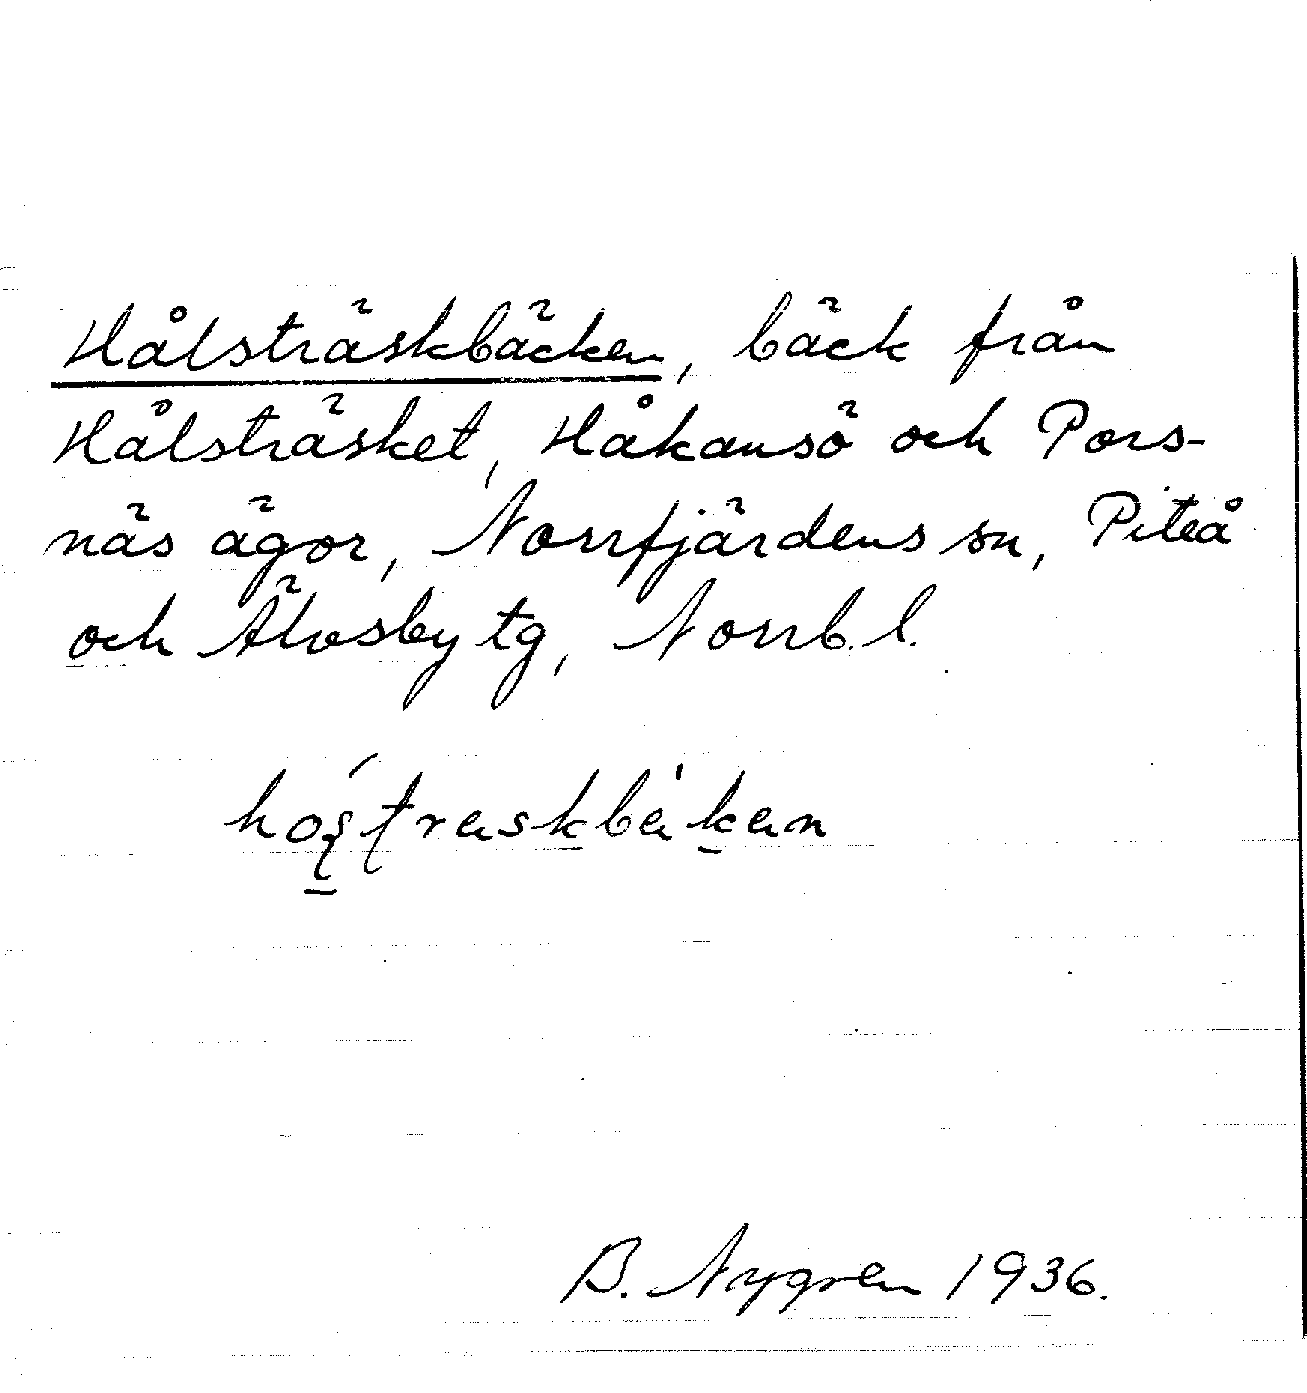 Hålsträskbäcken, bäck från
Hålsträsket, Håkansö och Pors-
näs ägor, Norrfjärdens sn, Piteå
och Älvsby tg, Norrb. l.
B. Nygren 1936.